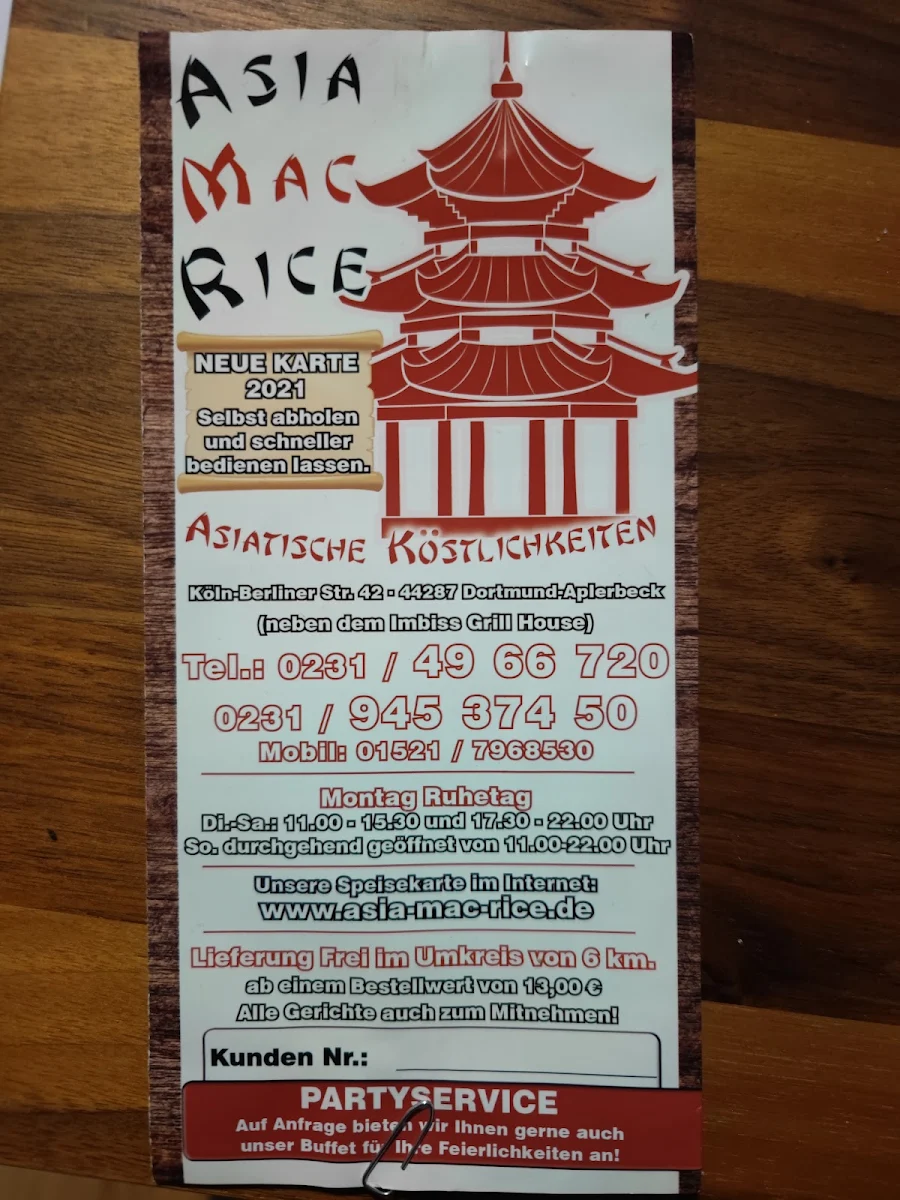 ASIA
MAC
RICE
NEUE KARTE
2021
Selbst abholen
und schneller
bedienen lassen.
ASIATISCHE KÖSTLICHKEITEN
Köln-Berliner Str. 42 - 44287 Dortmund-Aplerbeck
(neben dem Imbiss Grill House)
Tel.: 0231 / 49 66 720
0231 / 945 374 50
Mobil: 01521 / 7968530
Montag Ruhetag
Di.-Sa.: 11.00 - 15.30 und 17.30 - 22.00 Uhr
So. durchgehend geöffnet von 11.00-22.00 Uhr
Unsere Speisekarte im Internet:
www.asia-mac-rice.de
Lieferung Frei im Umkreis von 6 km.
ab einem Bestellwert von 13,00 €
Alle Gerichte auch zum Mitnehmen!
Kunden Nr.:
PARTYSERVICE
Auf Anfrage bieten wir Ihnen gerne auch
unser Buffet für Ihre Feierlichkeiten an!